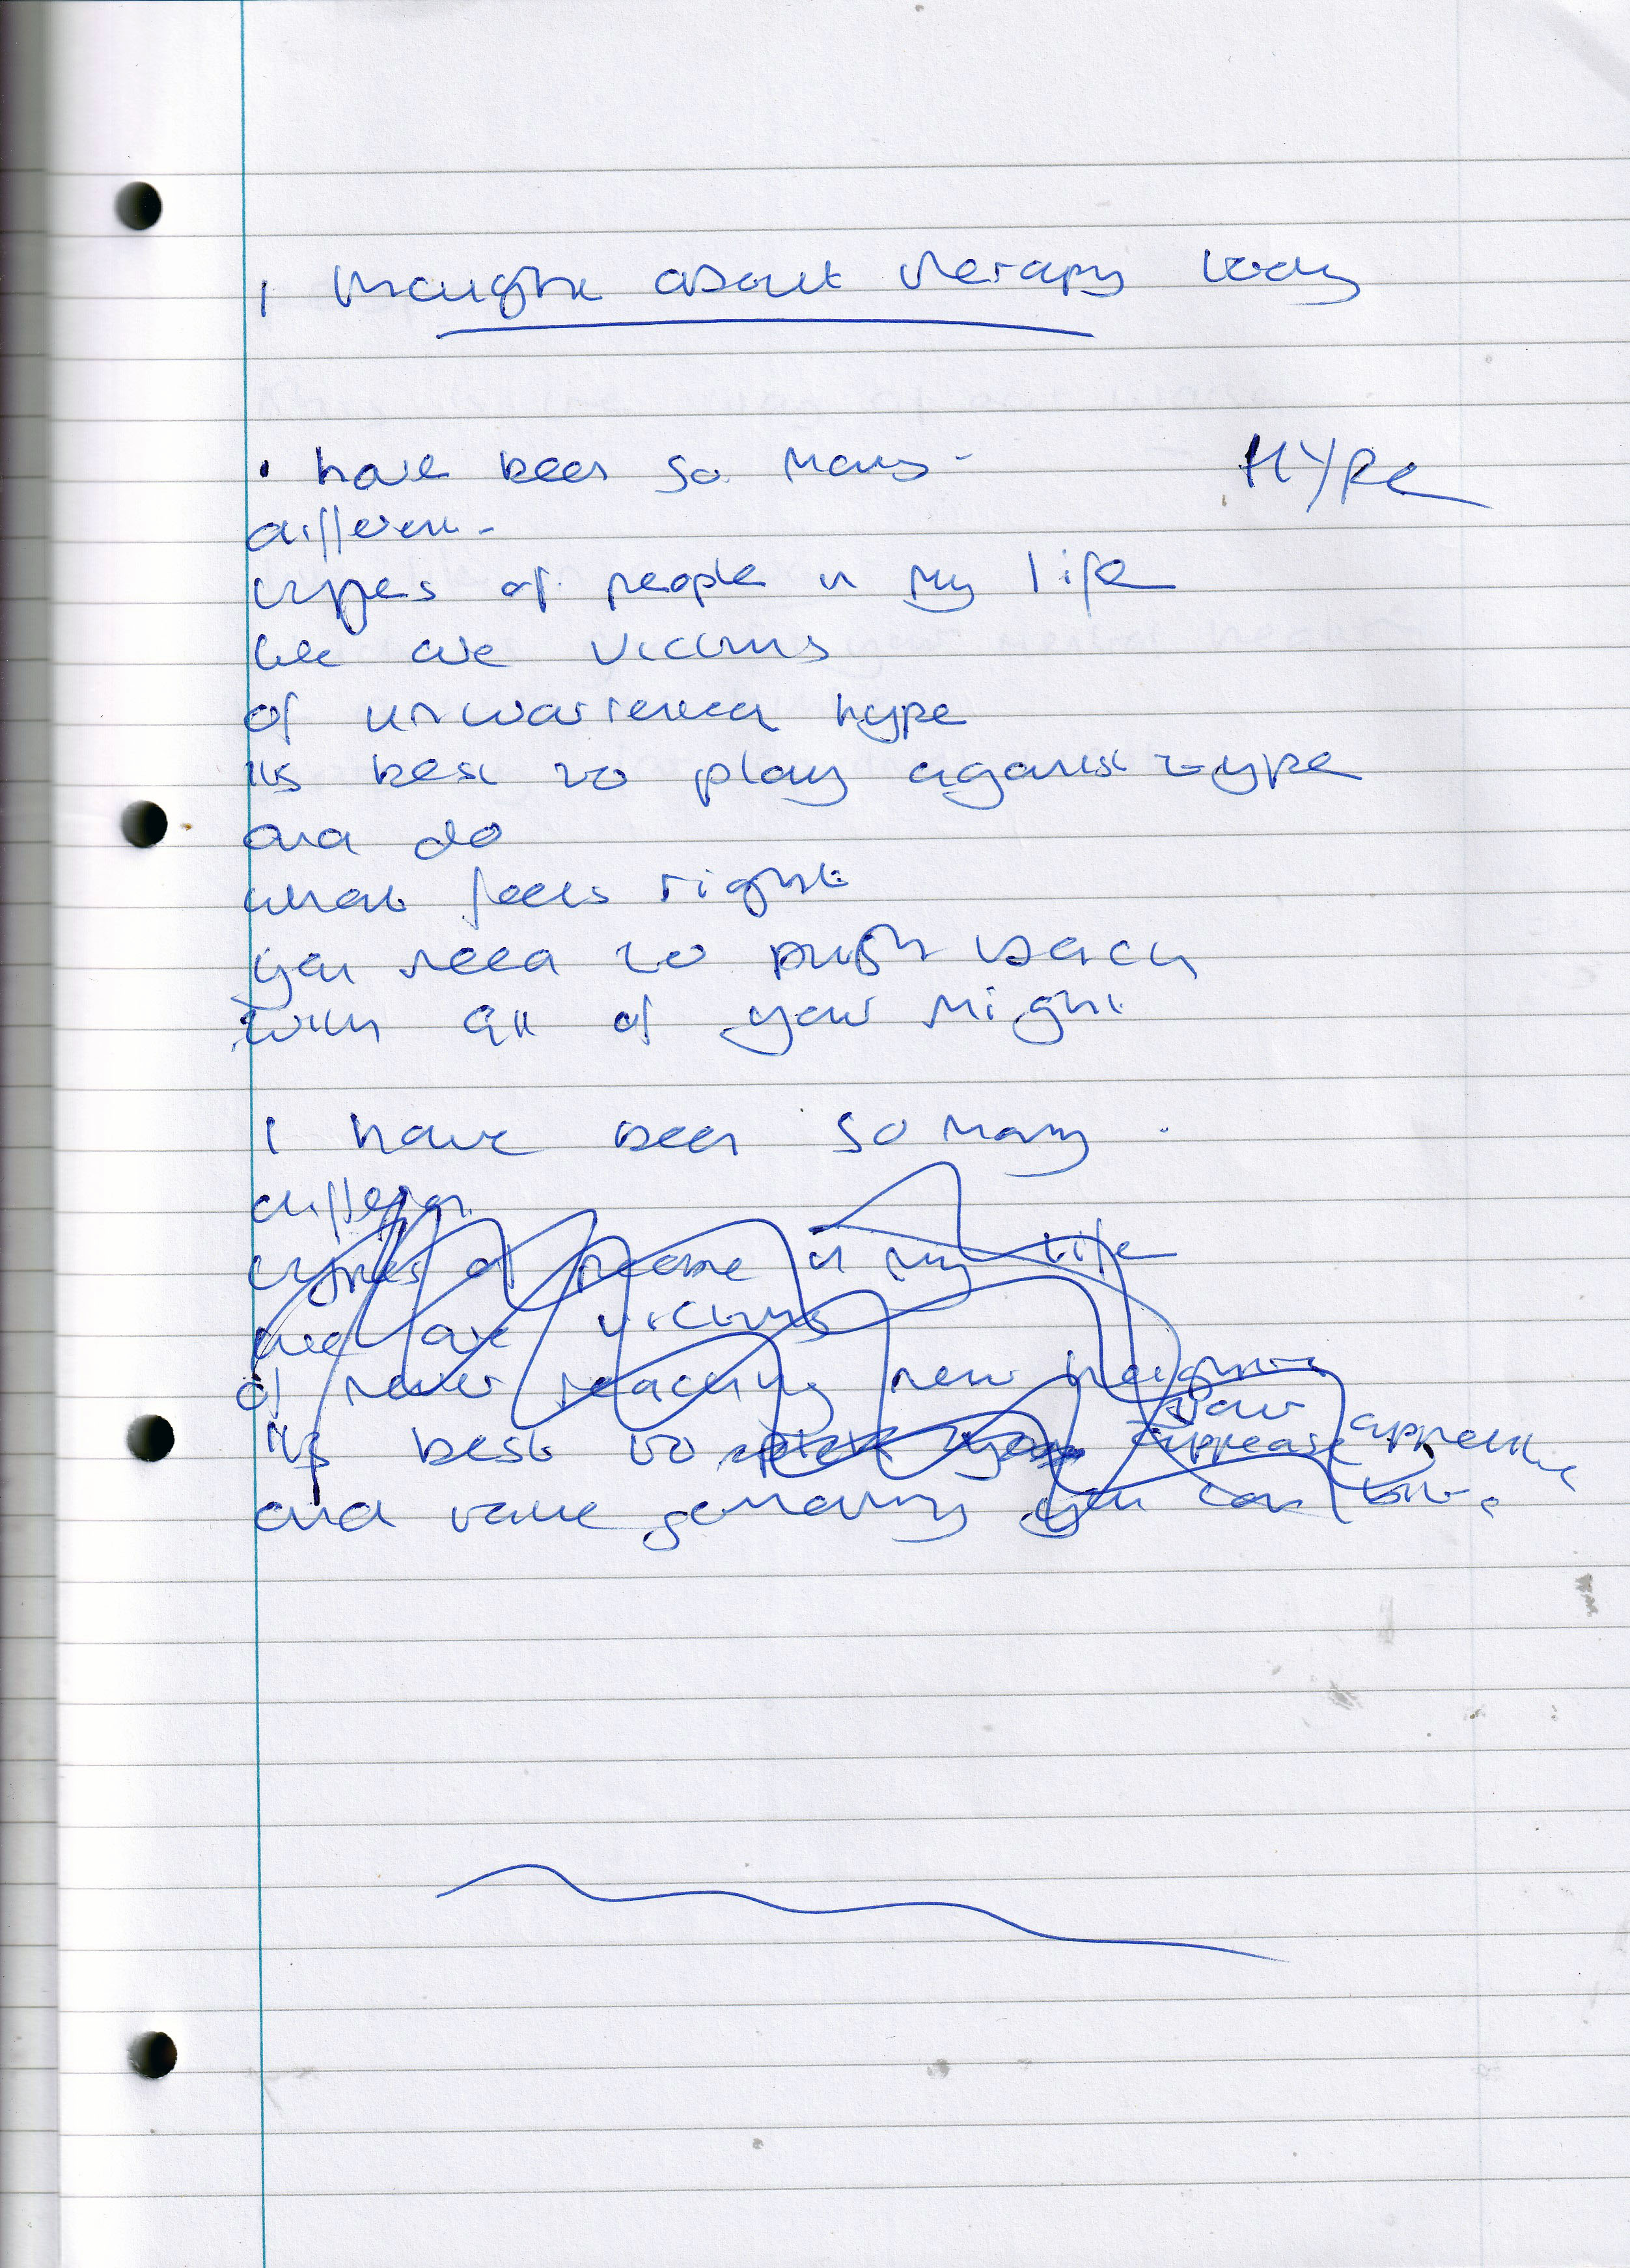 I thought about therapy today
I have been so many HYPE
different
types of people in my life
we are victims
of unwarranted hype
its best to play against type
and do
what feels right
you need to push back
with all of your might
I have been so many
different
types of people in my life
we are victims
of never reaching new heights
its best to your appease appetite
and take so many you can bite